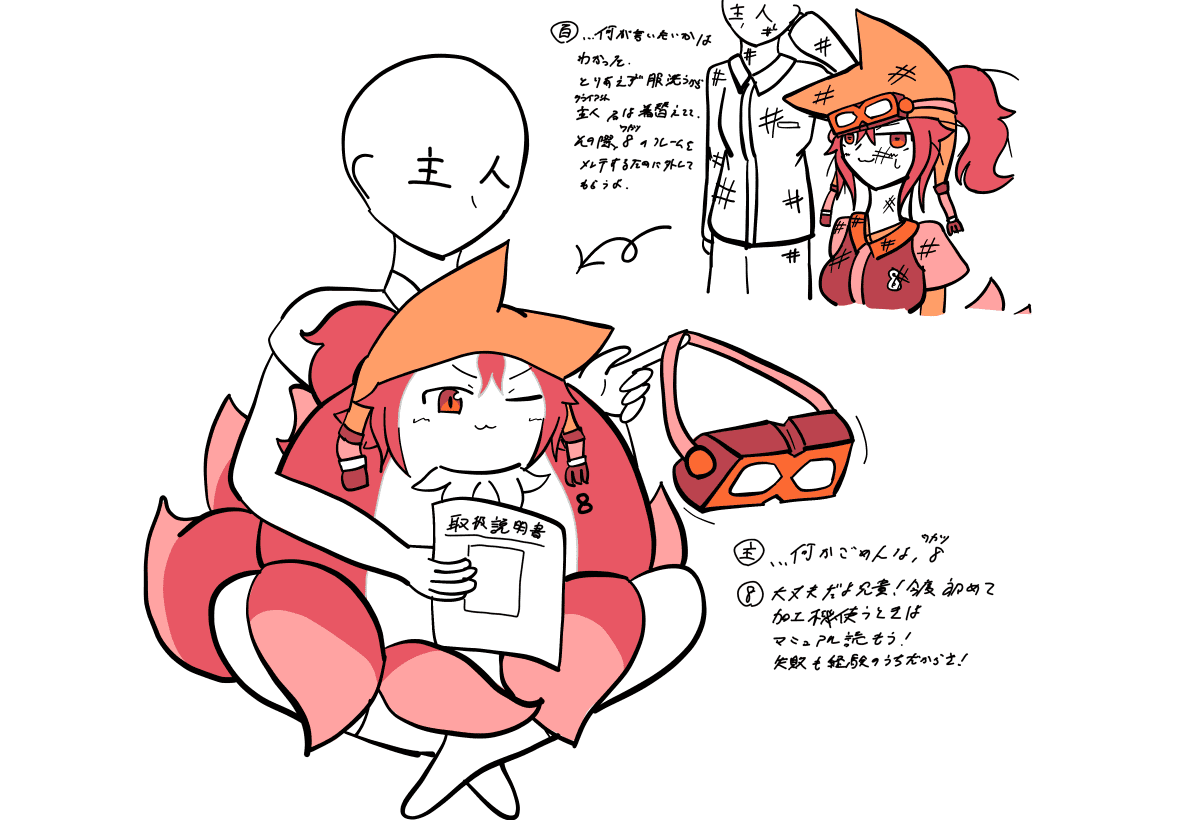 百 …何が言いたいかは
わかった.
とりあえず服洗うから
クライアント
主人 8は着替えてて.
ワカツ
その際, 8のフレームを
メンテするために外して
もらうよ.
主人
主 人
8
取扱説明書
8
ワカツ
主 …何かごめんな, 8
8 大丈夫だよ兄貴!今度初めて
加工機使うときは
マニュアル読もう!
失敗も経験のうちだからさ!